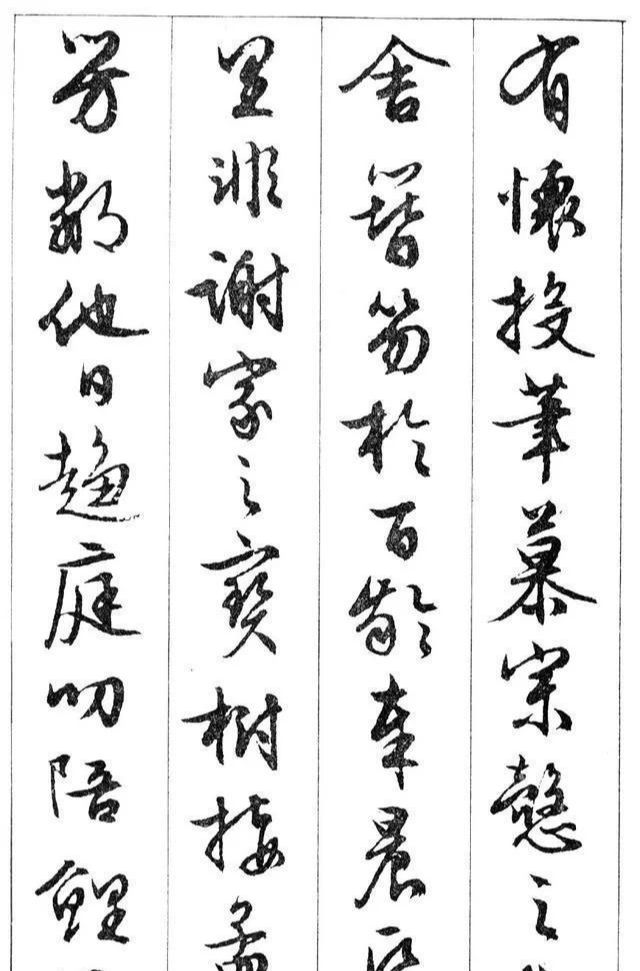 有懷投筆慕宗愨之
舍簪笏於百齡奉晨昏
里非謝家之寶樹接孟
芳鄰他日趨庭叨陪鯉